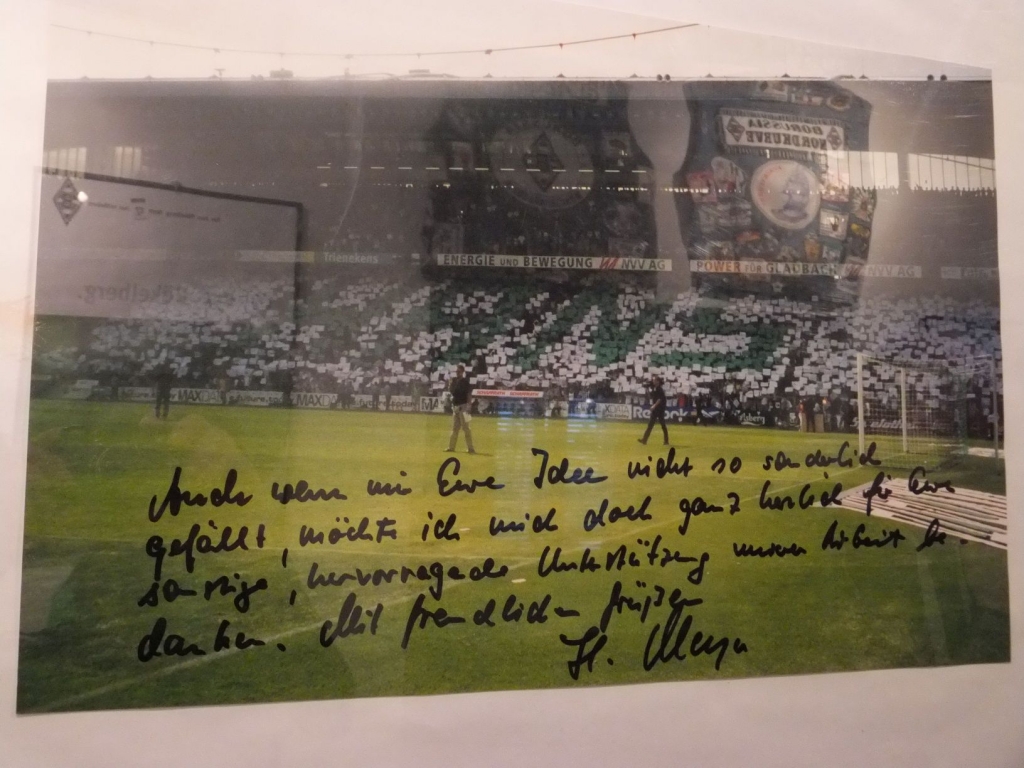 BORUSSIA
NORDKURVE
Trienekens
ENERGIE UND BEWEGUNG NVV AG
POWER FÜR GLADBACH NVV AG
kelberg.
MAXDATA
MAXD
MA
Auch wenn mir Eure Idee nicht so sonderlich
gefällt, möchte ich mich doch ganz herzlich für Eure
sonstige, hervorragende Unterstützung unserer Arbeit be-
danken. Mit freundlichen Grüßen
H. Meyer